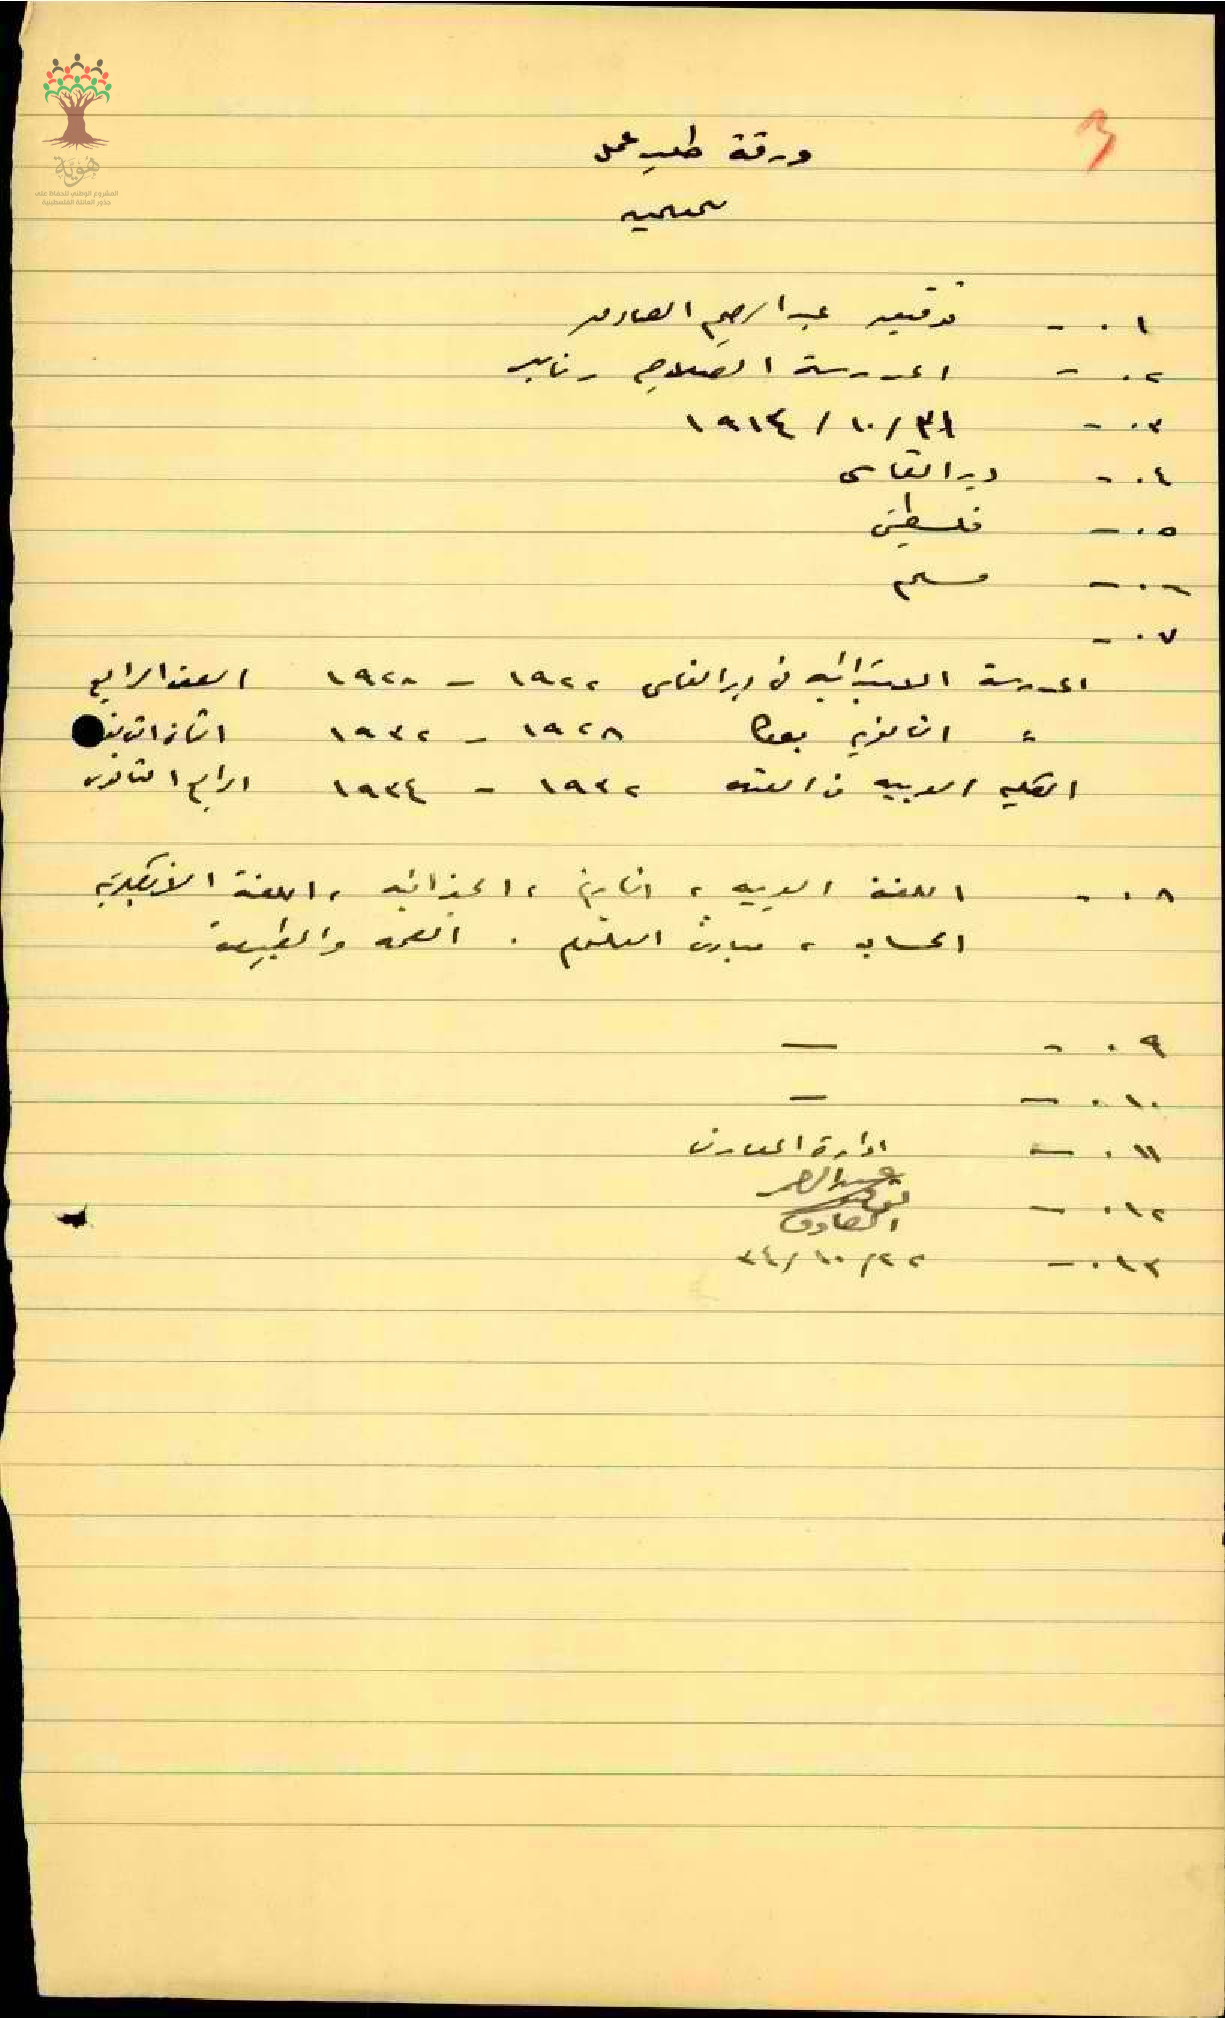 هُوِيَّة
المشروع الوطني للحفاظ على
جذور العائلة الفلسطينية
ورقة طلب عمل
١. - توفيق عبد الرحيم الصادق
٢. - المدرسة الصلاحية نابلس
٣. - ٣١/ ١٠/ ١٩١٤
٤. - دير القاسي
٥. - فلسطين
٦. - مسلم
٧. -
المدرسة الابتدائيه في دير القاسي ١٩٢٢ - ١٩٢٨ الصف الرابع
" الثانويه بعكا ١٩٢٨ - ١٩٣٢ الثاني الثانوي
الكليه العربيه في القدس ١٩٣٢ - ١٩٣٤ الرابع الثانوي
٨. - اللغة العربيه ، التاريخ ، الجغرافيه ، اللغة الانكليزيه
الحساب ، مبادئ التعليم . الصحه والطبيعة
٩. - —
١٠. - —
١١. - ادارة المعارف
١٢. - توفيق عبد الرحيم الصادق
١٣. - ٢٢/ ١٠/ ٣٤